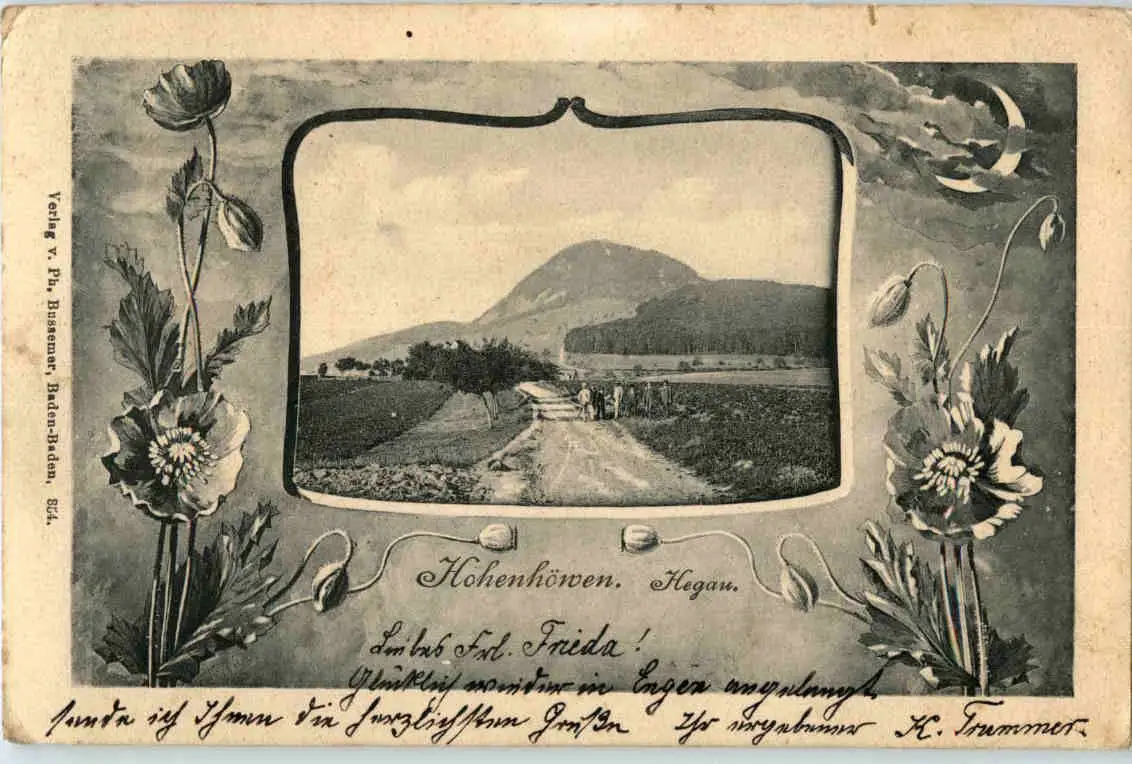 Verlag v. Ph. Bussemer, Baden-Baden. 854.
Hohenhöwen. Hegau.
Liebes Frl. Frieda!
Glücklich wieder in Engen angelangt
sende ich Ihnen die herzlichsten Grüße Ihr ergebener K. Trummer.